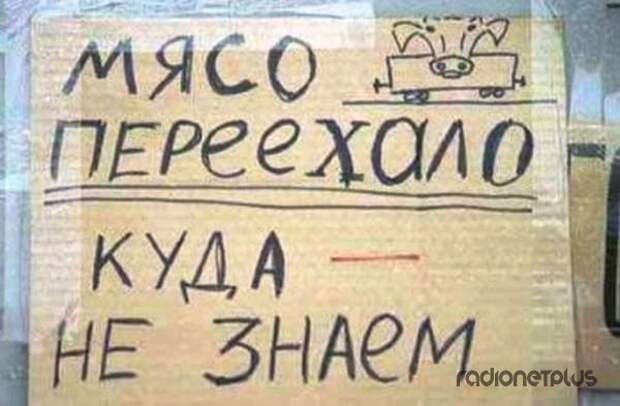 МЯСО
ПЕРЕЕХАЛО
КУДА —
НЕ ЗНАЕМ
radionetplus